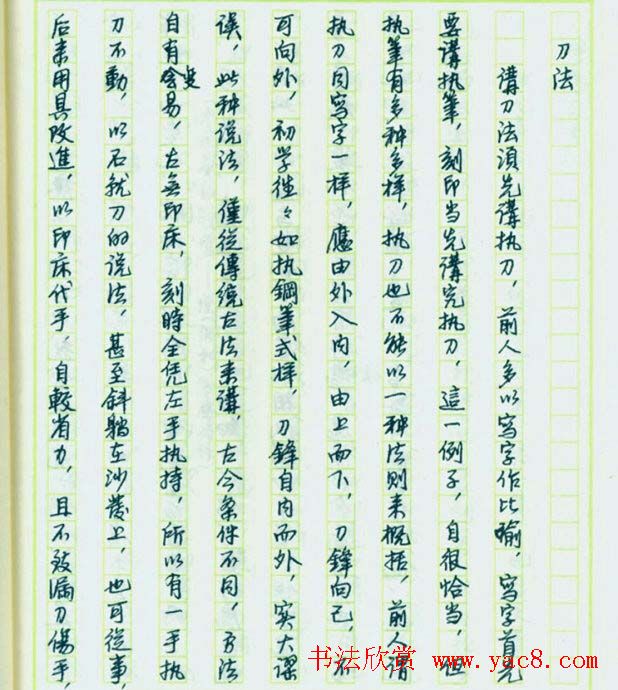 刀法
講刀法須先講执刀，前人多以寫字作比喻，寫字首先
要講执筆，刻印当先講究执刀，這一例子，自很恰当，但
执筆有多种多样，执刀也不能以一种法则来概括，前人谓
执刀同寫字一样，應由外入内，由上而下，刀鋒向己，不
可向外，初学往々如执鋼筆式样，刀鋒自内而外，实大謬
误，此种说法，僅從傳统古法来講，古今条件不同，方法
自有变易，古無印床，刻時全凭左手执持，所以有一手执
刀不動，以石就刀的说法，甚至斜躺在沙發上，也可從事，
后来用具改進，以印床代手，自較省力，且不致漏刀傷手，
书法欣赏 www.yac8.com